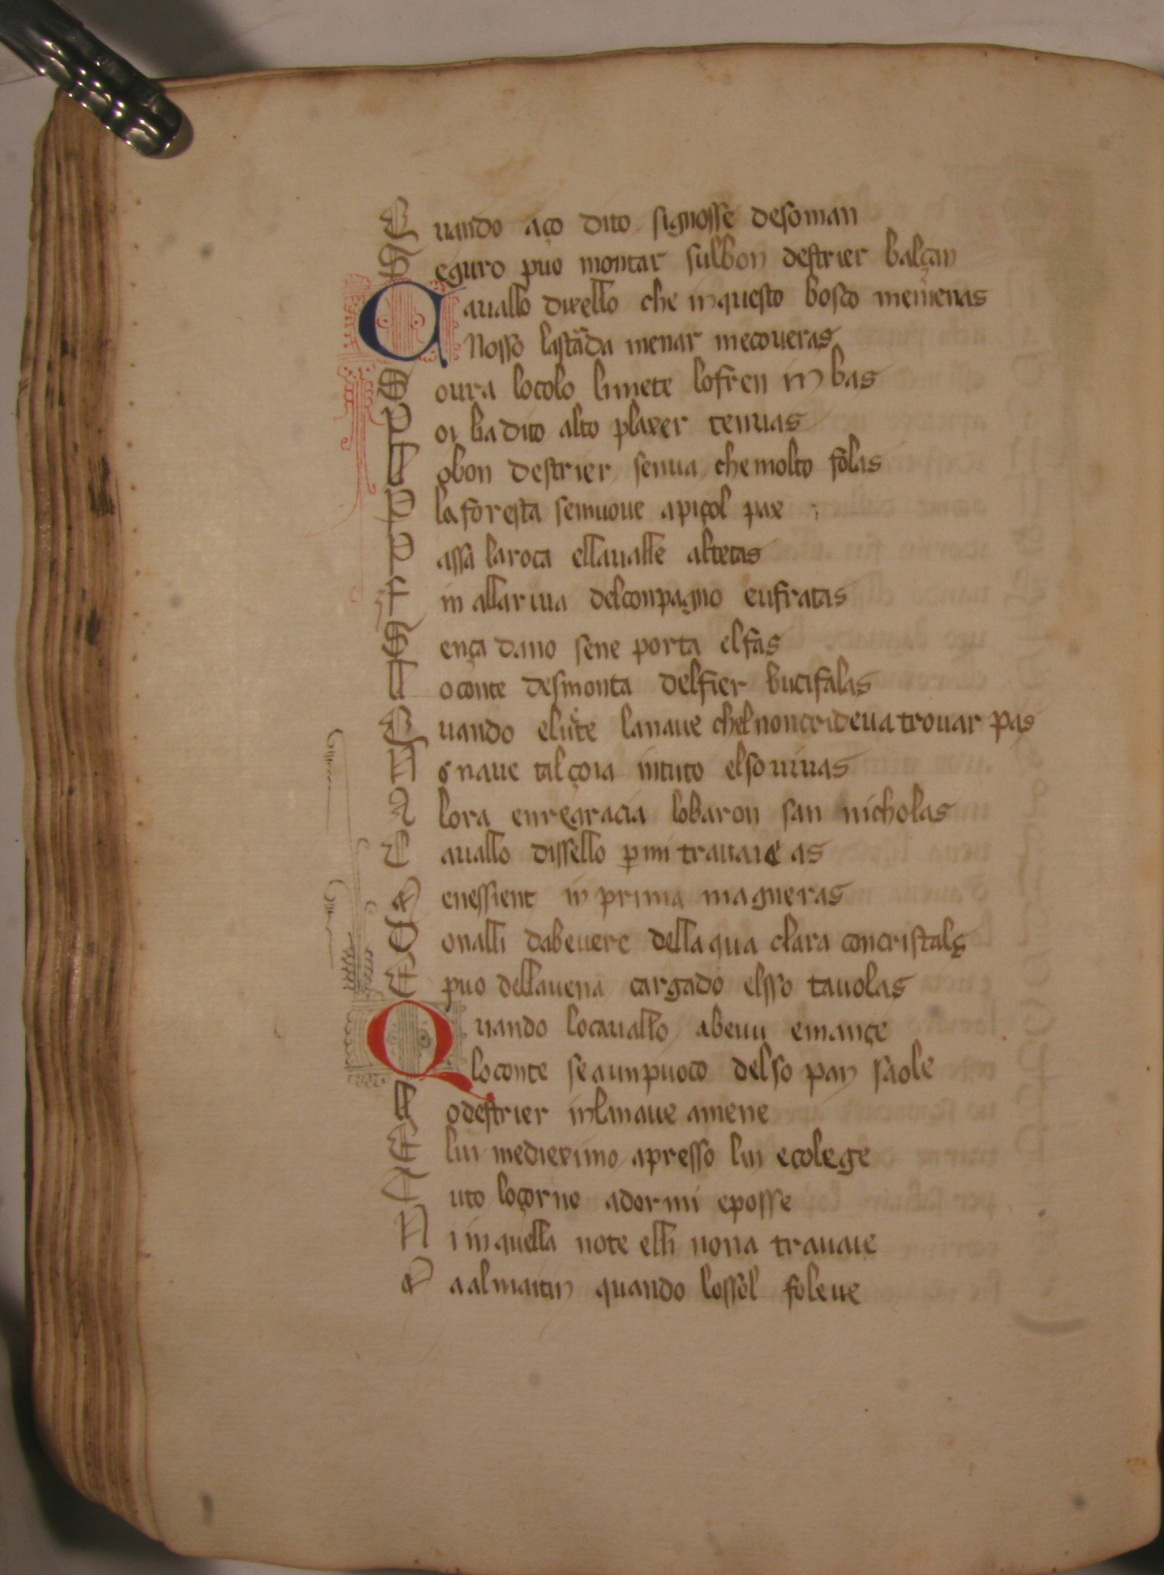 Quando aço dito signosse desoman
Seguro puo montar sulbon destrier balçan
Cauallo dixello che inquesto bosco memenas
Nosso lastada menar mecoueras
Soura locolo limete lofren in bas
Poi ba dito alto plaxer tenuas
Llobon destrier senua chemolto folas
Pla foresta semuoue apiçol pax
Passa laroca ellaualle altetas
Fin allariua delconpagno eufratas
Sença dano sene porta elfas
Lloconte desmonta delfier bucifalas
Quando elute lanaue chelnoncrideua trouar pas
Nonaue tal çoia intuto elsouiuas
Alora enregracia lobaron san nicholas
Cauallo dissello pmi trauaie as
Menessient in prima magneras
Donalli dabeuere dellaqua clara concristals
Epuo dellauena cargado elsso tauolas
Quando locauallo abeuu emançe
Eloconte seaunpuoco delso pan saole
Llodestrier inlanaue amene
Elui mediximo apresso lui ecolege
Tuto loçorno adormi eposse
Ni inquella note elli nona trauaie
Maalmaitin quando lossol foleue